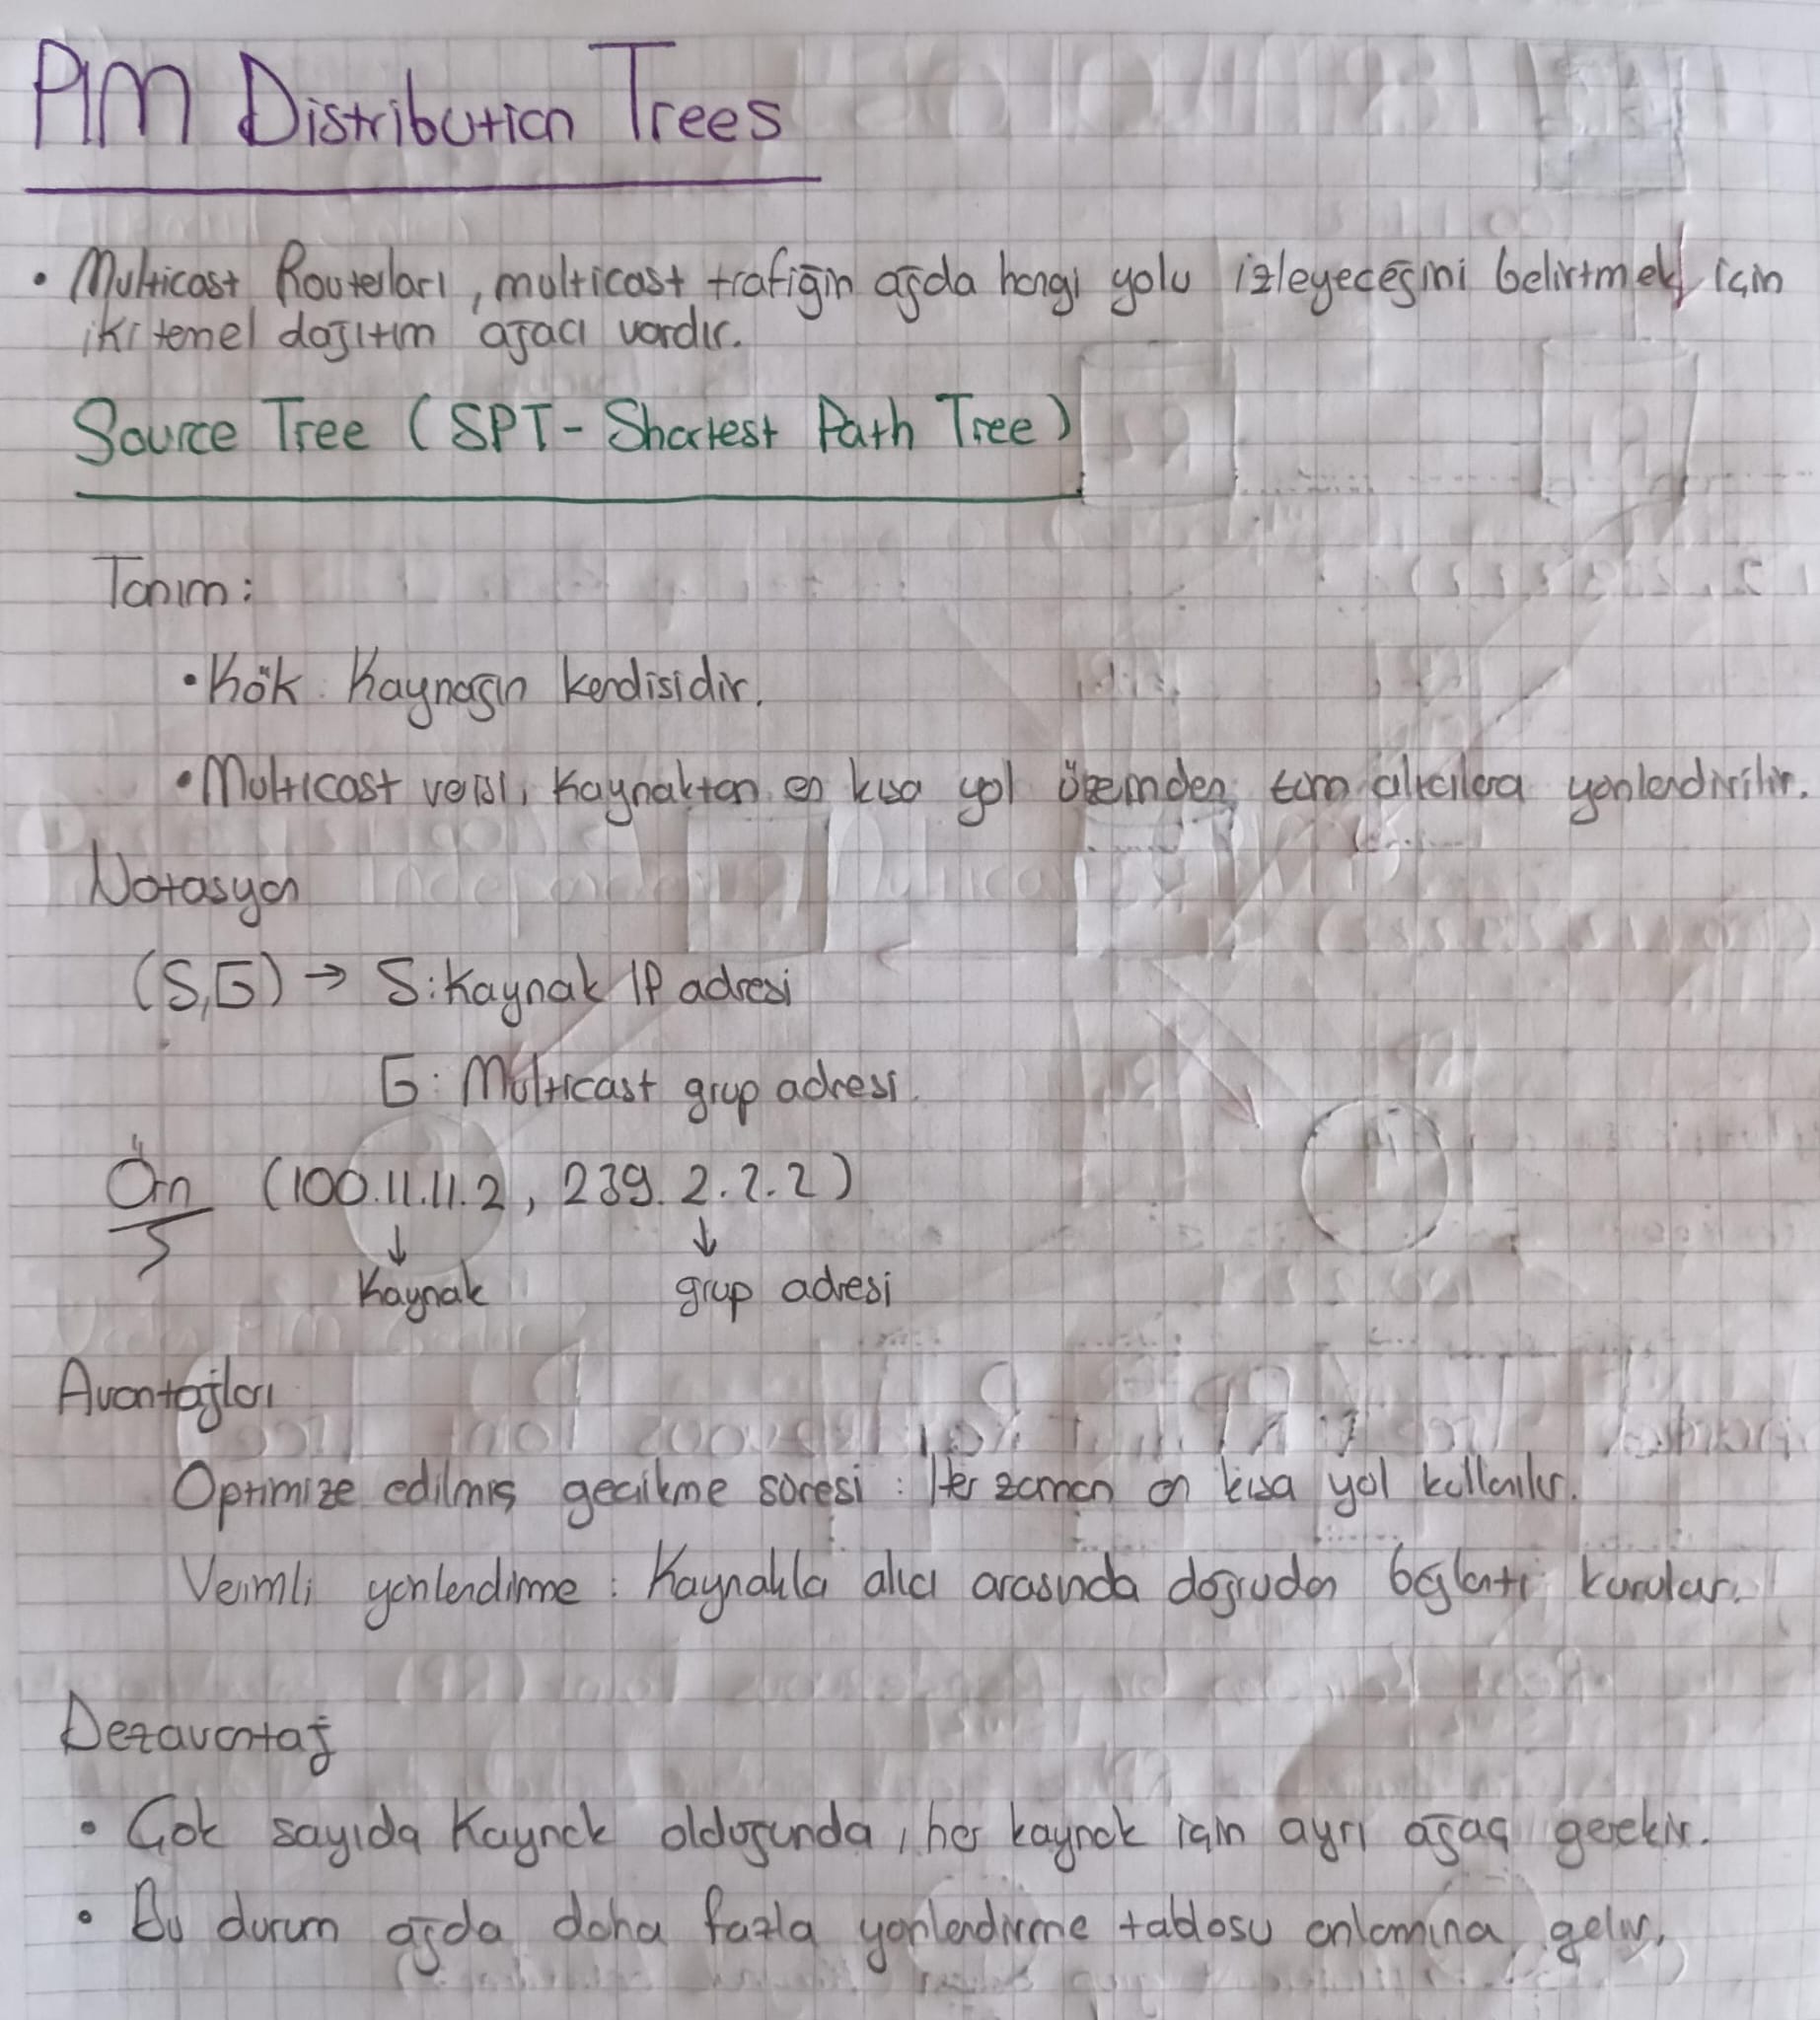 PIM Distribution Trees
• Multicast Routerları, multicast trafiğin ağda hangi yolu izleyeceğini belirtmek için
iki temel dağıtım ağacı vardır.
Source Tree (SPT- Shortest Path Tree)
Tanım:
• Kök: Kaynağın kendisidir.
• Multicast verisi, kaynaktan en kısa yol üzerinden tüm alıcılara yönlendirilir.
Notasyon
(S,G) → S: Kaynak IP adresi
G: Multicast grup adresi.
Örn (100.11.11.2, 239.2.2.2)
↓ ↓
Kaynak grup adresi
Avantajları
Optimize edilmiş gecikme süresi: Her zaman en kısa yol kullanılır.
Verimli yönlendirme: Kaynakla alıcı arasında doğrudan bağlantı kurulur.
Dezavantaj
• Çok sayıda Kaynak olduğunda, her kaynak için ayrı ağaç gerekir.
• Bu durum ağda daha fazla yönlendirme tablosu anlamına gelir.